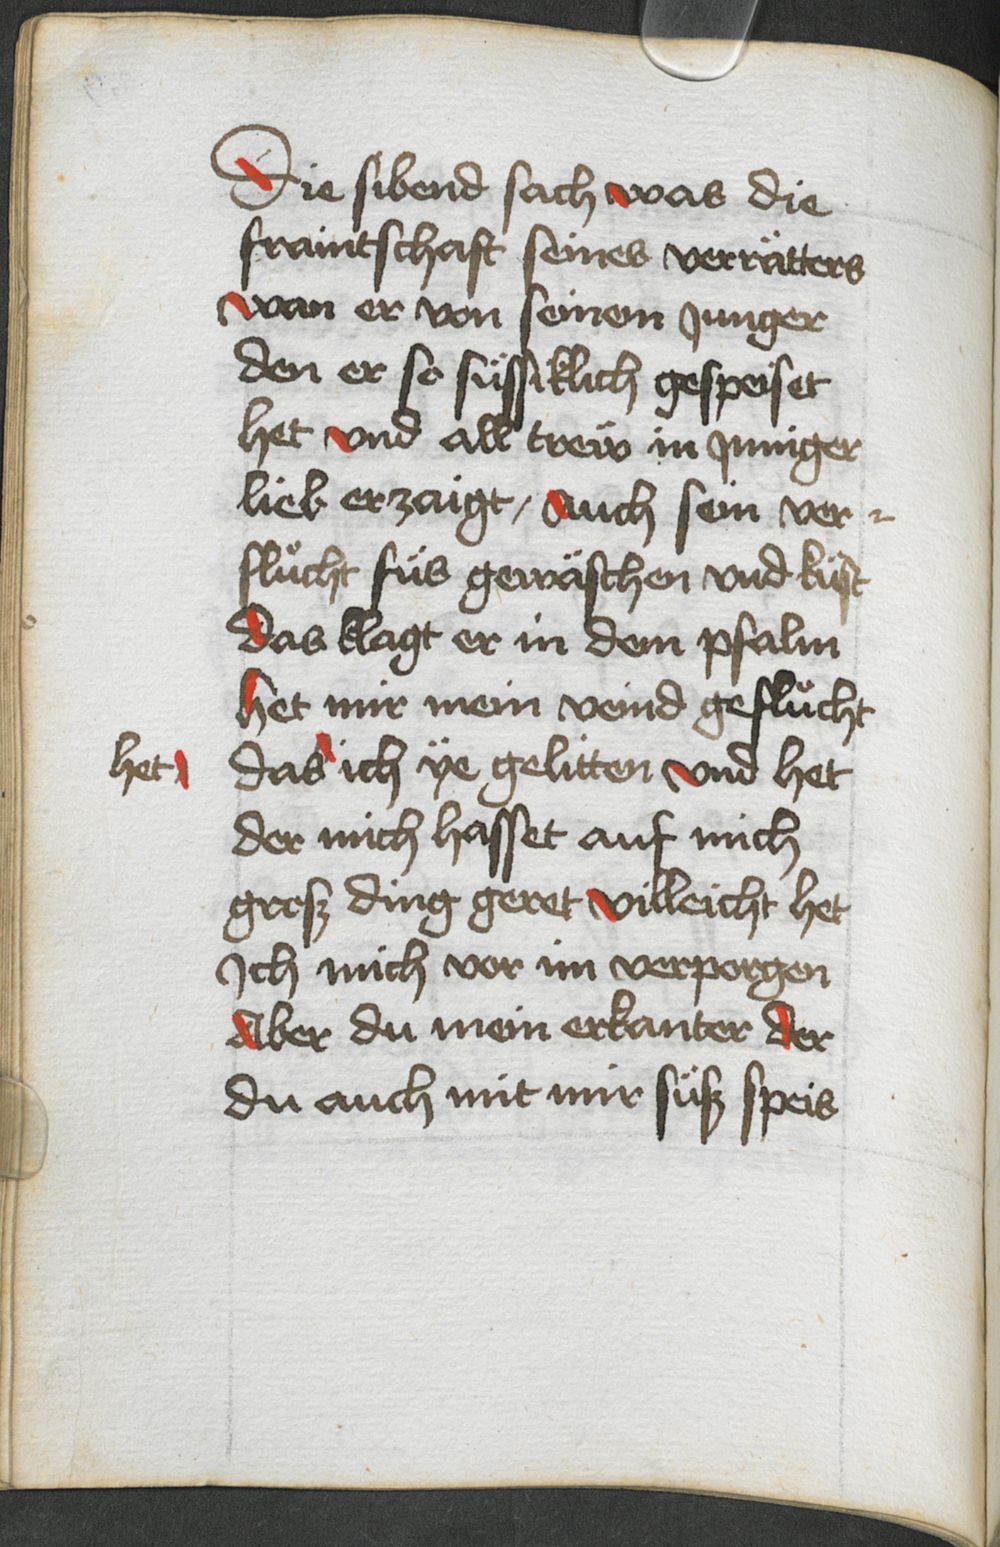 Die sibend sach was die
fraintschaft seines verrätters
wan er von seinem Junger
den er so süssiklich gespeiset
het vnd all trew in Jnniger
lieb erzaigt / Auch sein ver-
flůcht füs gewäschen vnd küst
Das klagt er in dem psalm
Het mir mein veind geflůcht
het das ich ÿe gelitten vnd het
der mich hasset auf mich
grosz ding geret villeicht het
Jch mich vor im verporgen
Aber du mein erkanter Der
du auch mit mir süsz speis